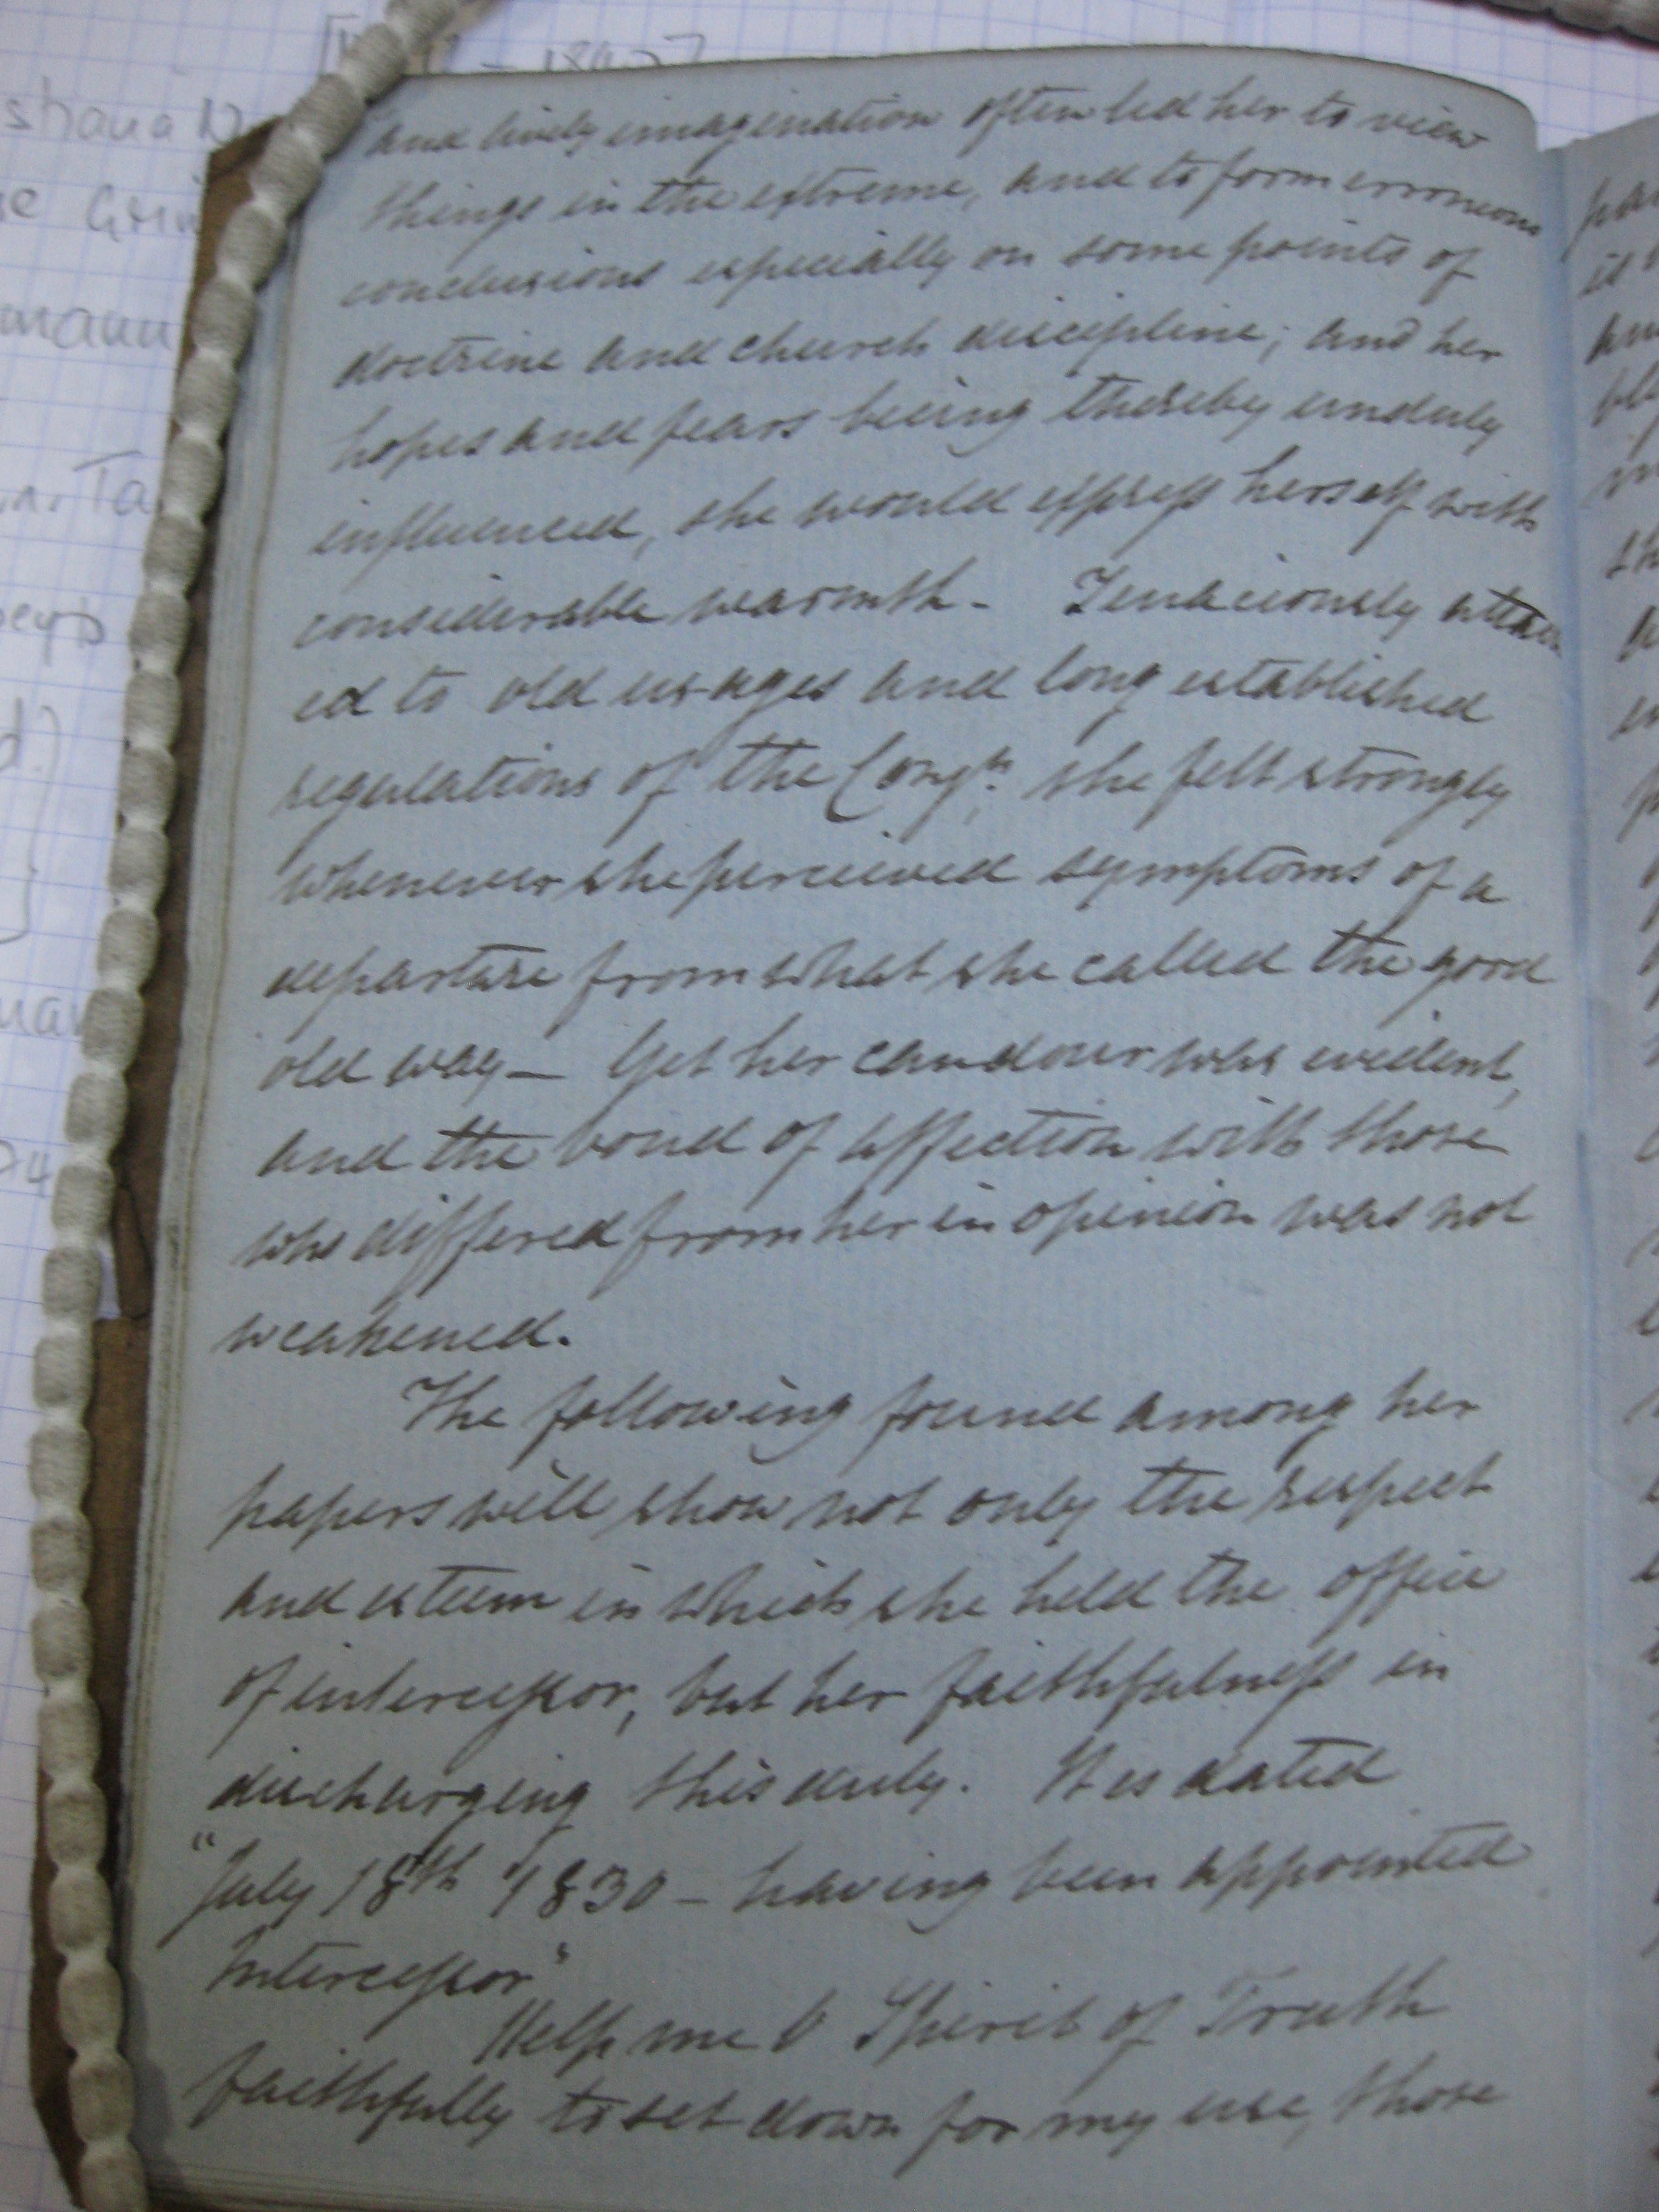 and lively imagination often led her to view
things in the extreme, and to form erroneous
conclusions especially on some points of
doctrine and church discipline; and her
hopes and fears being thereby unduly
influenced, she would express herself with
considerable warmth. Tenaciously attach
ed to old usages and long established
regulations of the Congn. she felt strongly
whenever she perceived symptoms of a
departure from what she called the good
old way — Yet her candour was evident,
and the bond of affection with those
who differed from her in opinion was not
weakened.
The following found among her
papers will show not only the respect
and esteem in which she held the office
of intercessor, but her faithfulness in
discharging this duty. It is dated
"July 18th 1830 — having been appointed
Intercessor"
Help me O Spirit of Truth
faithfully to set down for my use, those